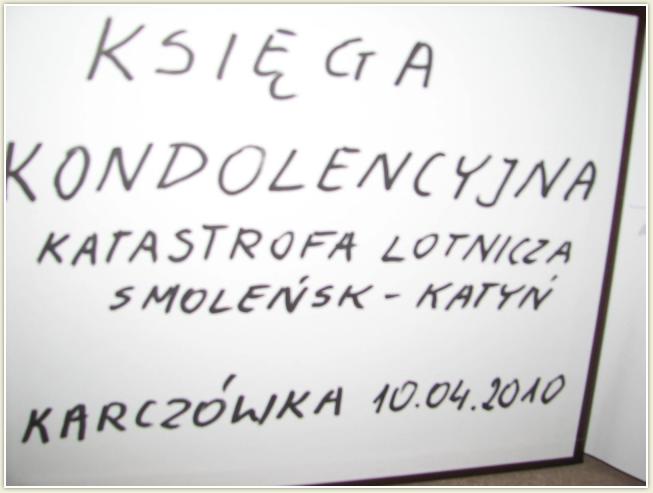 KSIĘGA
KONDOLENCYJNA
KATASTROFA LOTNICZA
SMOLEŃSK - KATYŃ
KARCZÓWKA 10.04.2010